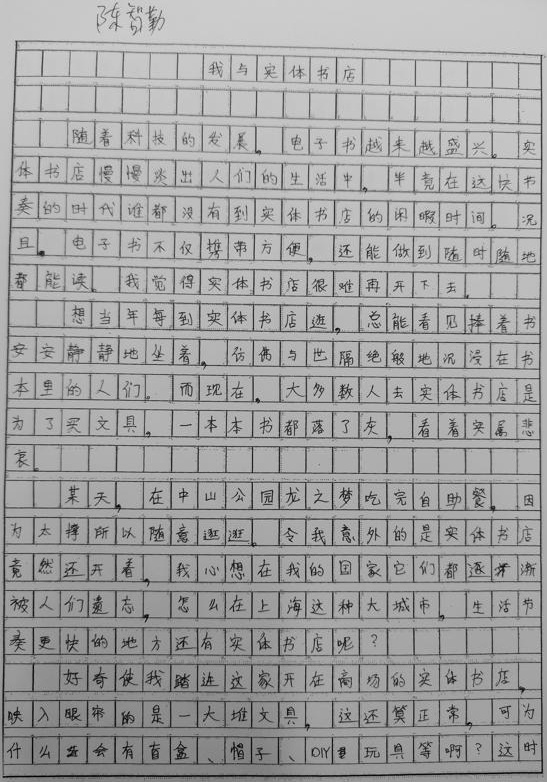 陈智勤
我与实体书店
随着科技的发展，电子书越来越盛兴。实
体书店慢慢淡出人们的生活中，半竟在这快节
奏的时代谁都没有到实体书店的闲暇时间。况
且，电子书不仅携带方便，还能做到随时随地
都能读。我觉得实体书店很难再开下去。
想当年每到实体书店逛，总能看见捧着书
安安静静地坐着，仿佛与世隔绝般地沉浸在书
本里的人们。而现在，大多数人去实体书店是
为了买文具，一本本书都落了灰，看着实属悲
哀。
某天，在中山公园龙之梦吃完自助餐，因
为太撑所以随意逛逛。令我意外的是实体书店
竟然还开着，我心想在我的国家它们都逐渐
被人们遗忘，怎么在上海这种大城市，生活节
奏更快的地方还有实体书店呢？
好奇使我踏进这家开在商场的实体书店，
映入眼帘的是一大堆文具，这还算正常，可为
什么会有盲盒、帽子、DIY玩具等啊？这时